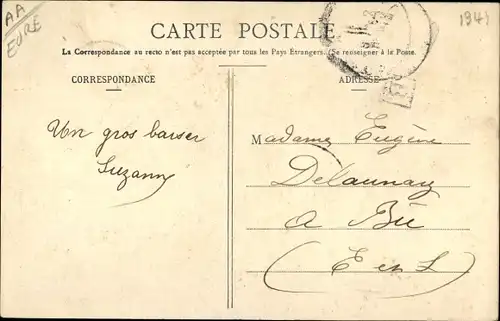 AA
EURE
1941
CARTE POSTALE
La Correspondance au recto n'est pas acceptée par tous les Pays Étrangers. (Se renseigner à la Poste.
CORRESPONDANCE
ADRESSE
Un gros baiser
Suzann
Madame Eugène
Delaunay
a Bû
(E en L)